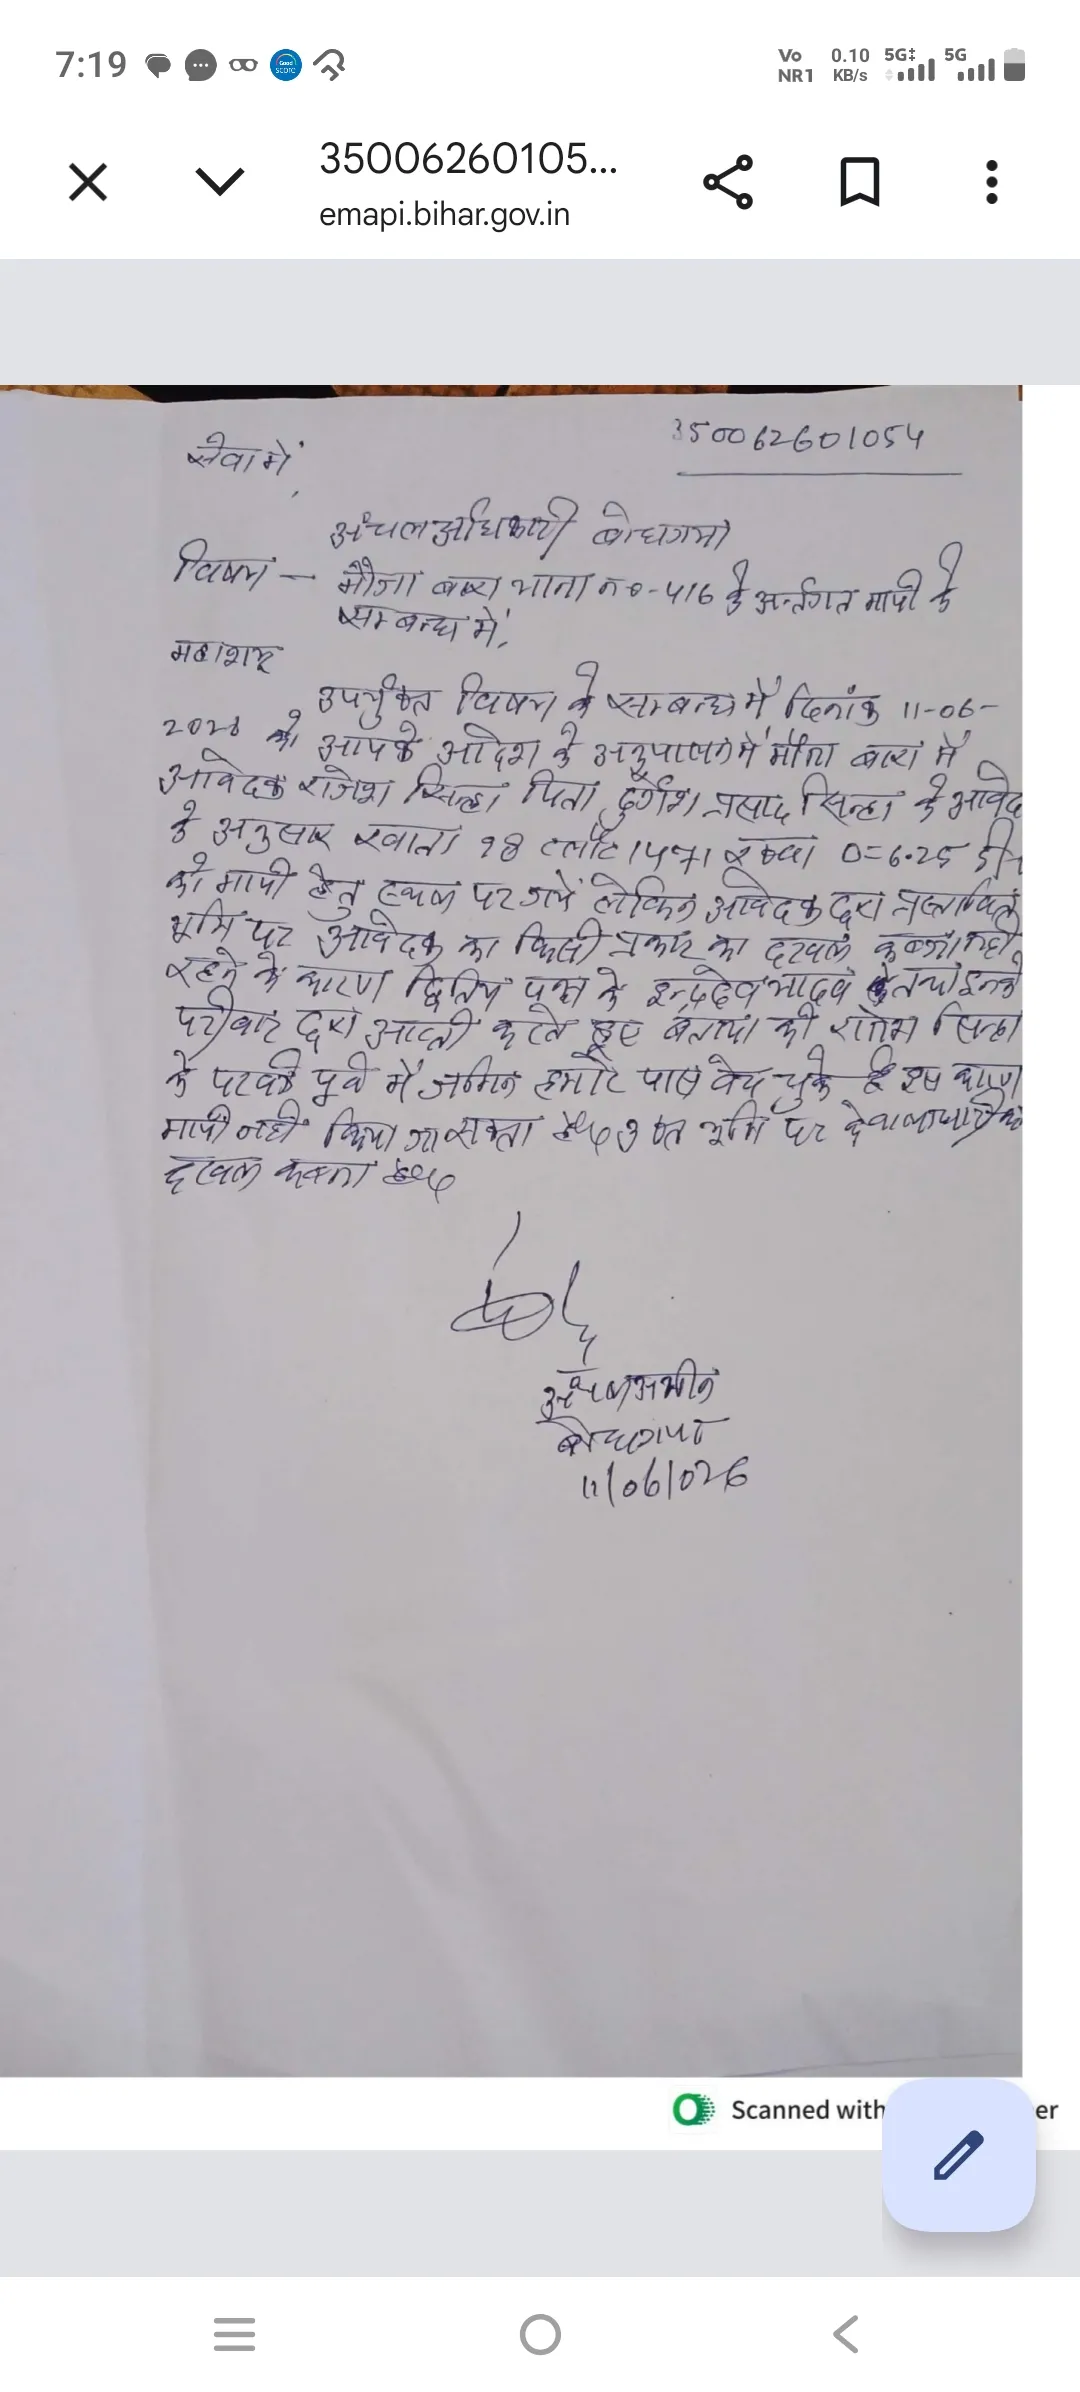 7:19
Vo NR1 0.10 KB/s 5G 5G
35006260105...
emapi.bihar.gov.in
350062601054
सेवा में,
अंचल अधिकारी बोधगया
विषय — मौजा बारा थाना न०-416 के अर्न्तगत मापी के
सम्बन्ध में,
महाशय
उपर्युक्त विषय के सम्बन्ध में दिनांक 11-06-
2026 को आपके आदेश के अनुपालन में मौजा बारा में
आवेदक राजेश सिन्हा पिता दुर्गेश प्रसाद सिन्हा के आवेद
के अनुसार खाता 18 प्लौट 1471 रकवा 0=6.25 डी०
को मापी हेतु स्थल पर गये लेकिन आवेदक द्वारा प्रस्तावित
भूमि पर आवेदक का किसी प्रकार का दखल कब्जा नही
रहने के कारण द्वितिय पक्ष के इन्द्रदेव यादव तथा इनके
परीवार द्वारा आपत्ती करते हुए बताया की राजेश सिन्हा
के पूर्व में जमिन हमारे पास बेच चुके है इस कारण
मापी नही किया जा सकता है उक्त भूमि पर
दखल कब्जा है
अंचल अमीन
बोधगया
11/06/026
Scanned with
er